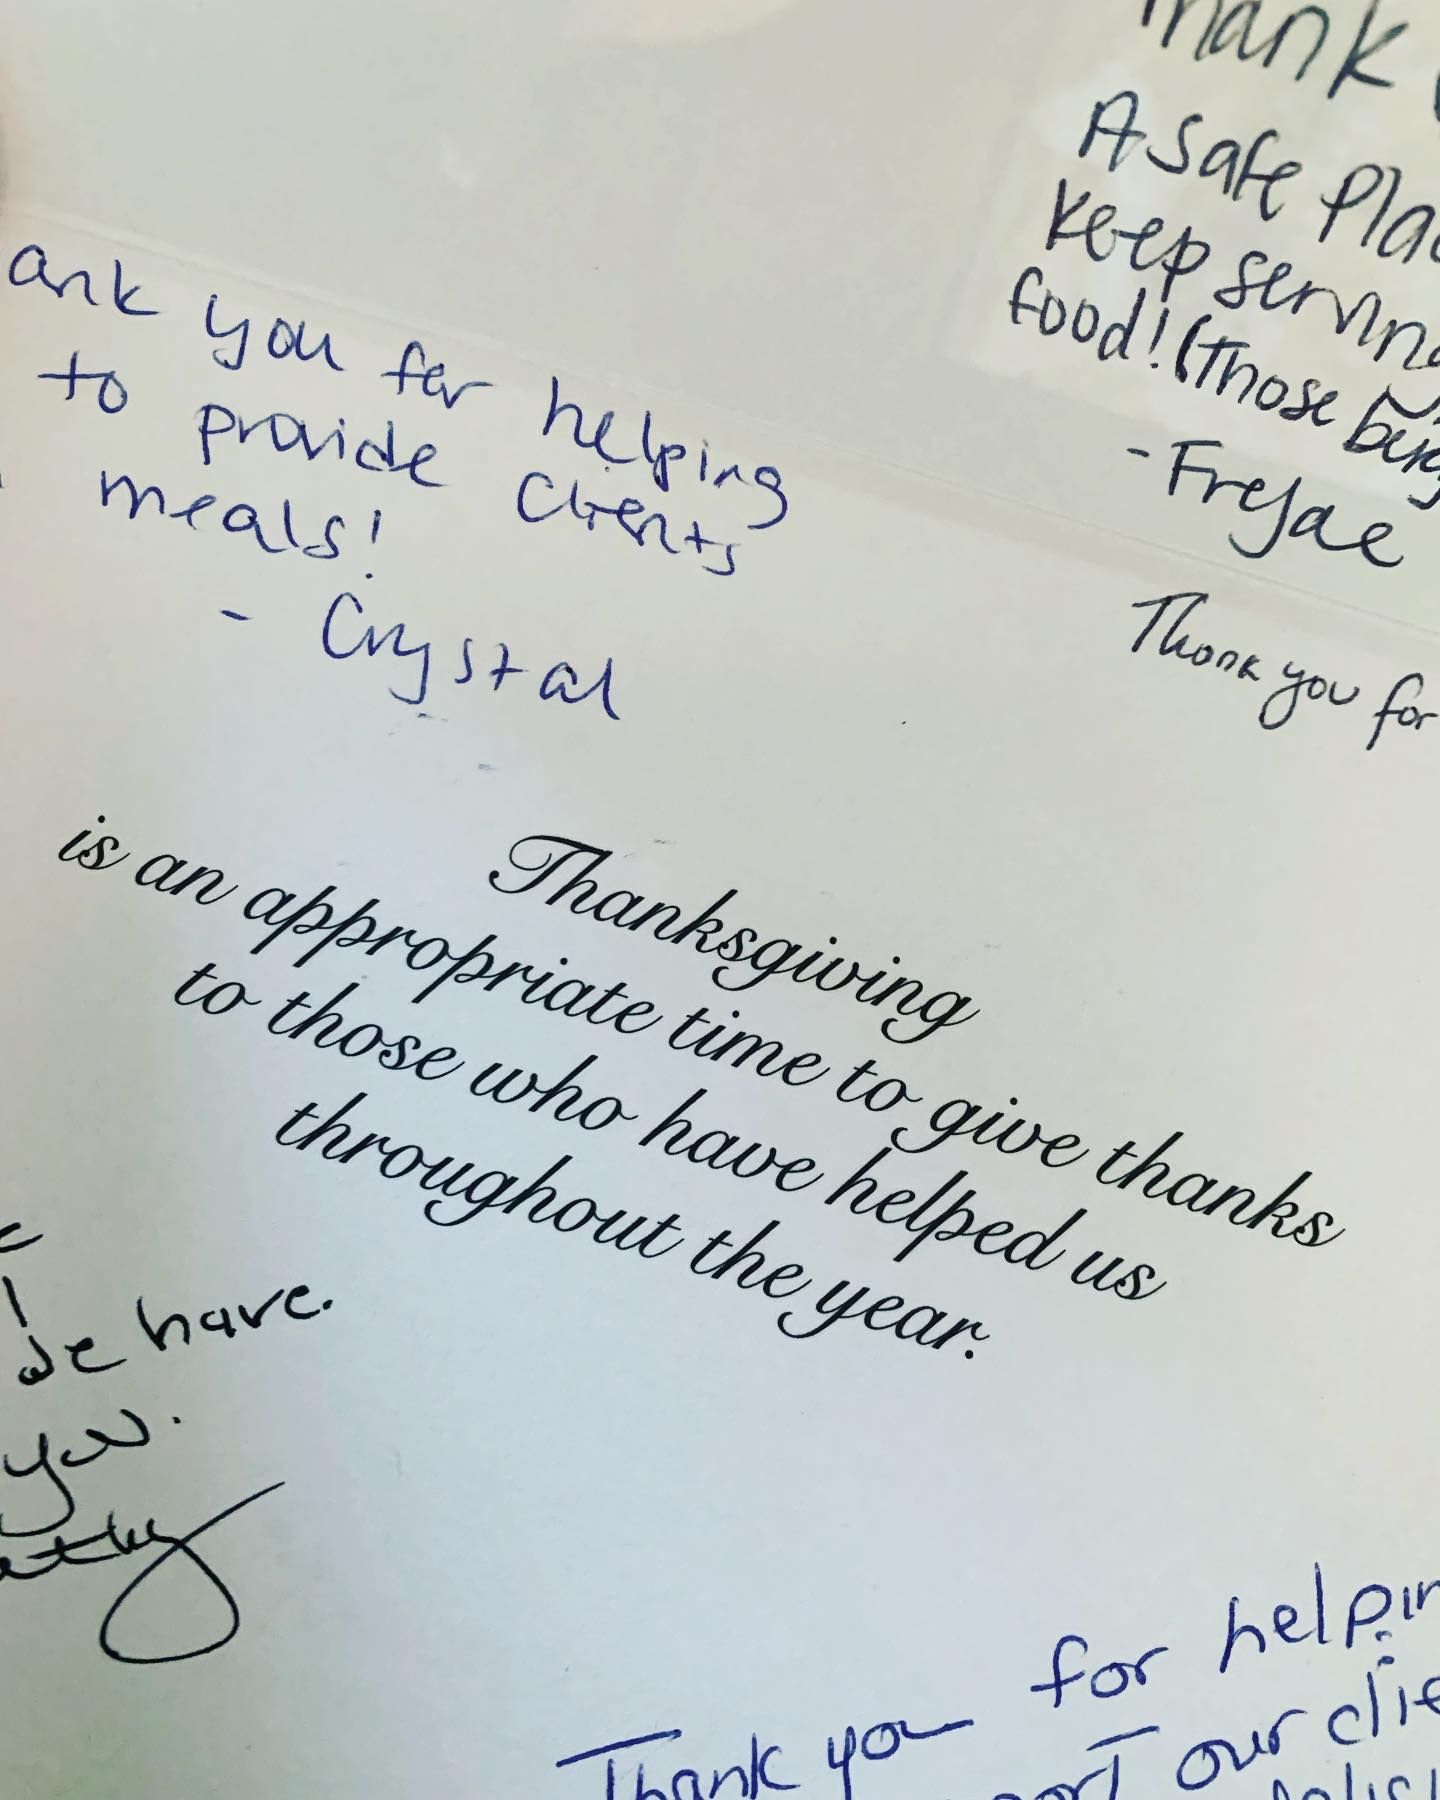 hank
A Safe Pla
Keep servin
food! (Those
- FreJae
Thank you for
ank you for helping
to provide Clients
meals!
- Crystal
Thanksgiving
is an appropriate time to give thanks
to those who have helped us
throughout the year.
we have.
you.
Thank you for helpin
ort our clie